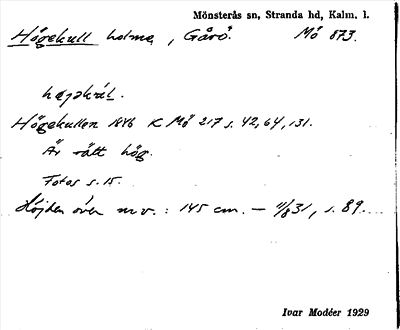 Mönsterås sn, Stranda hd, Kalm. l.
Högekull holme, Gårö. Mö 873.
Högekullen 1686 K Mö 217 s. 42, 64, 131.
Är rätt hög.
Fotos s. 15.
Höjden över m v. : 145 cm. – 11/8 31, s. 89.
Ivar Modéer 1929